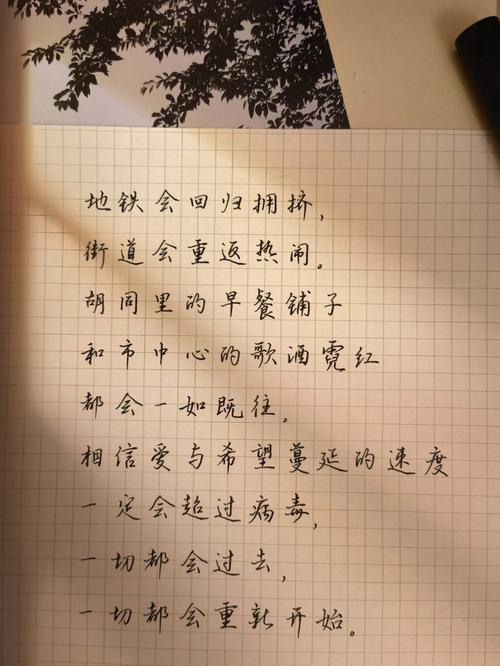 地铁会回归拥挤，
街道会重返热闹。
胡同里的早餐铺子
和市中心的歌酒霓红
都会一如既往。
相信爱与希望蔓延的速度
一定会超过病毒，
一切都会过去，
一切都会重新开始。